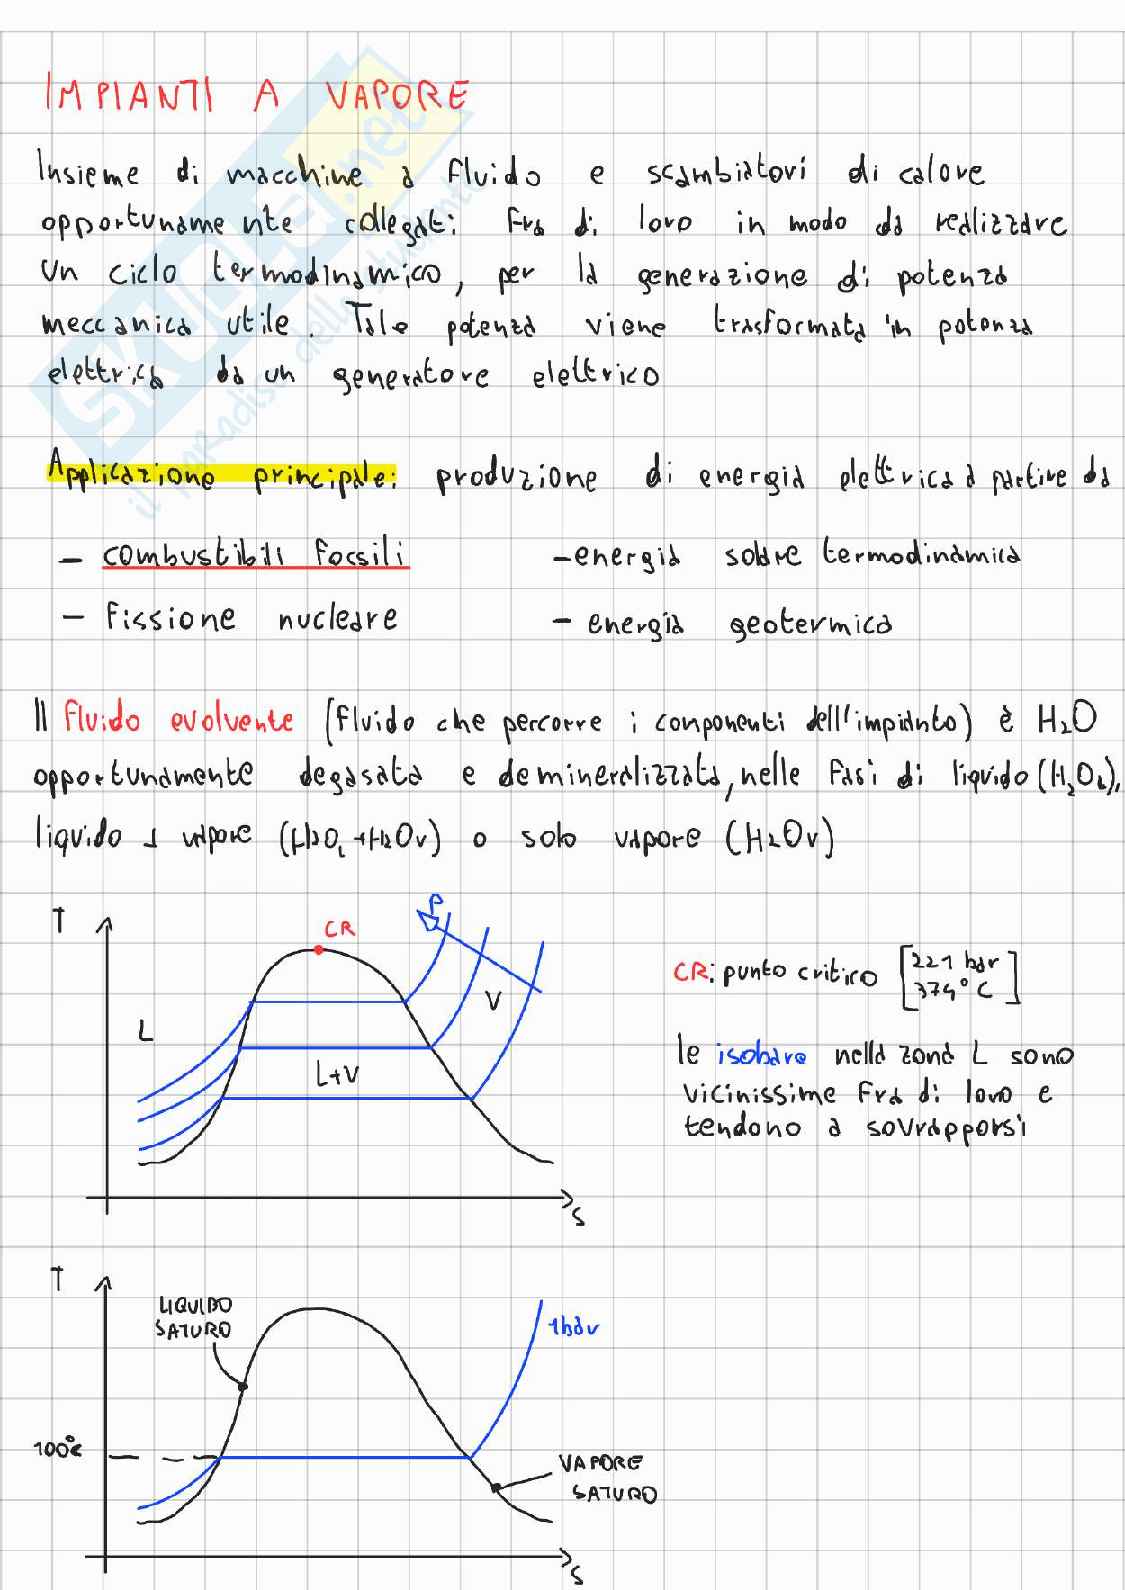 IMPIANTI A VAPORE
Insieme di macchine a fluido e scambiatori di calore
opportunamente collegati fra di loro in modo da realizzare
un ciclo termodinamico, per la generazione di potenza
meccanica utile. Tale potenza viene trasformata in potenza
elettrica da un generatore elettrico
Applicazione principale: produzione di energia elettrica a partire da
- combustibili fossili
- energia solare termodinamica
- fissione nucleare
- energia geotermica
Il fluido evolvente (fluido che percorre i componenti dell'impianto) è H2O
opportunamente degasata e demineralizzata, nelle fasi di liquido (H2OL),
liquido + vapore (H2OL+H2OV) o solo vapore (H2OV)
T
CR
P
L
V
L+V
S
CR: punto critico [221 bar
374°C]
le isobare nella zona L sono
vicinissime fra di loro e
tendono a sovrapporsi
T
LIQUIDO
SATURO
1bar
100°C
VAPORE
SATURO
S
SKUOLA.net
il paradiso dello studente